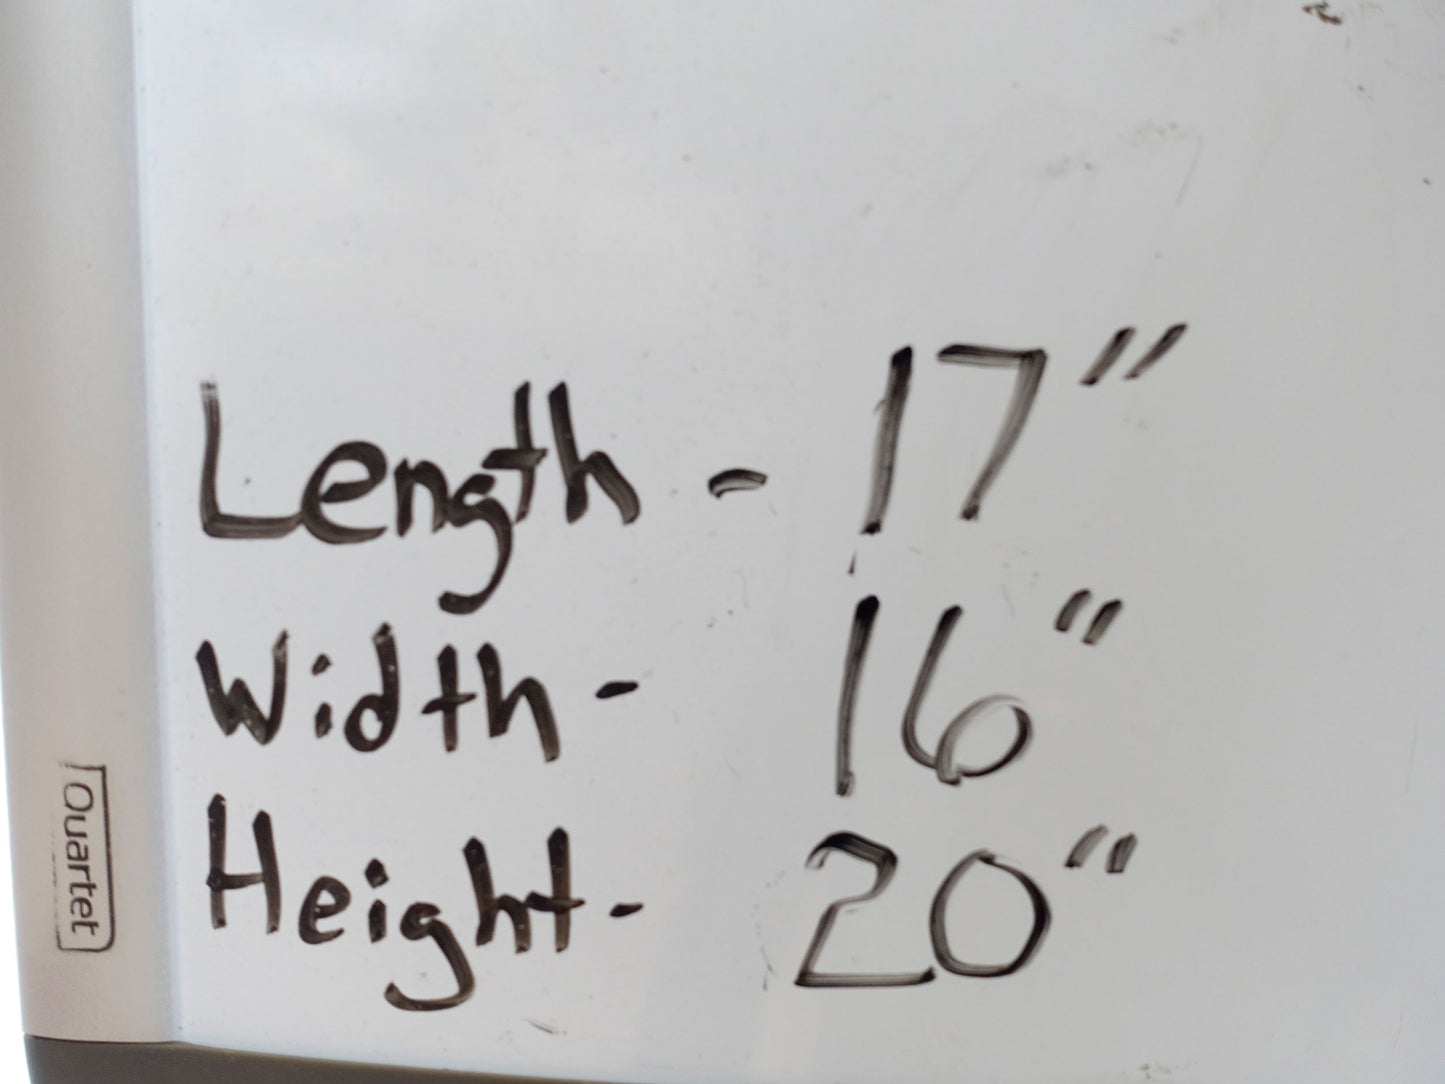 Length - 17"
Width - 16"
Height - 20"
Quartet